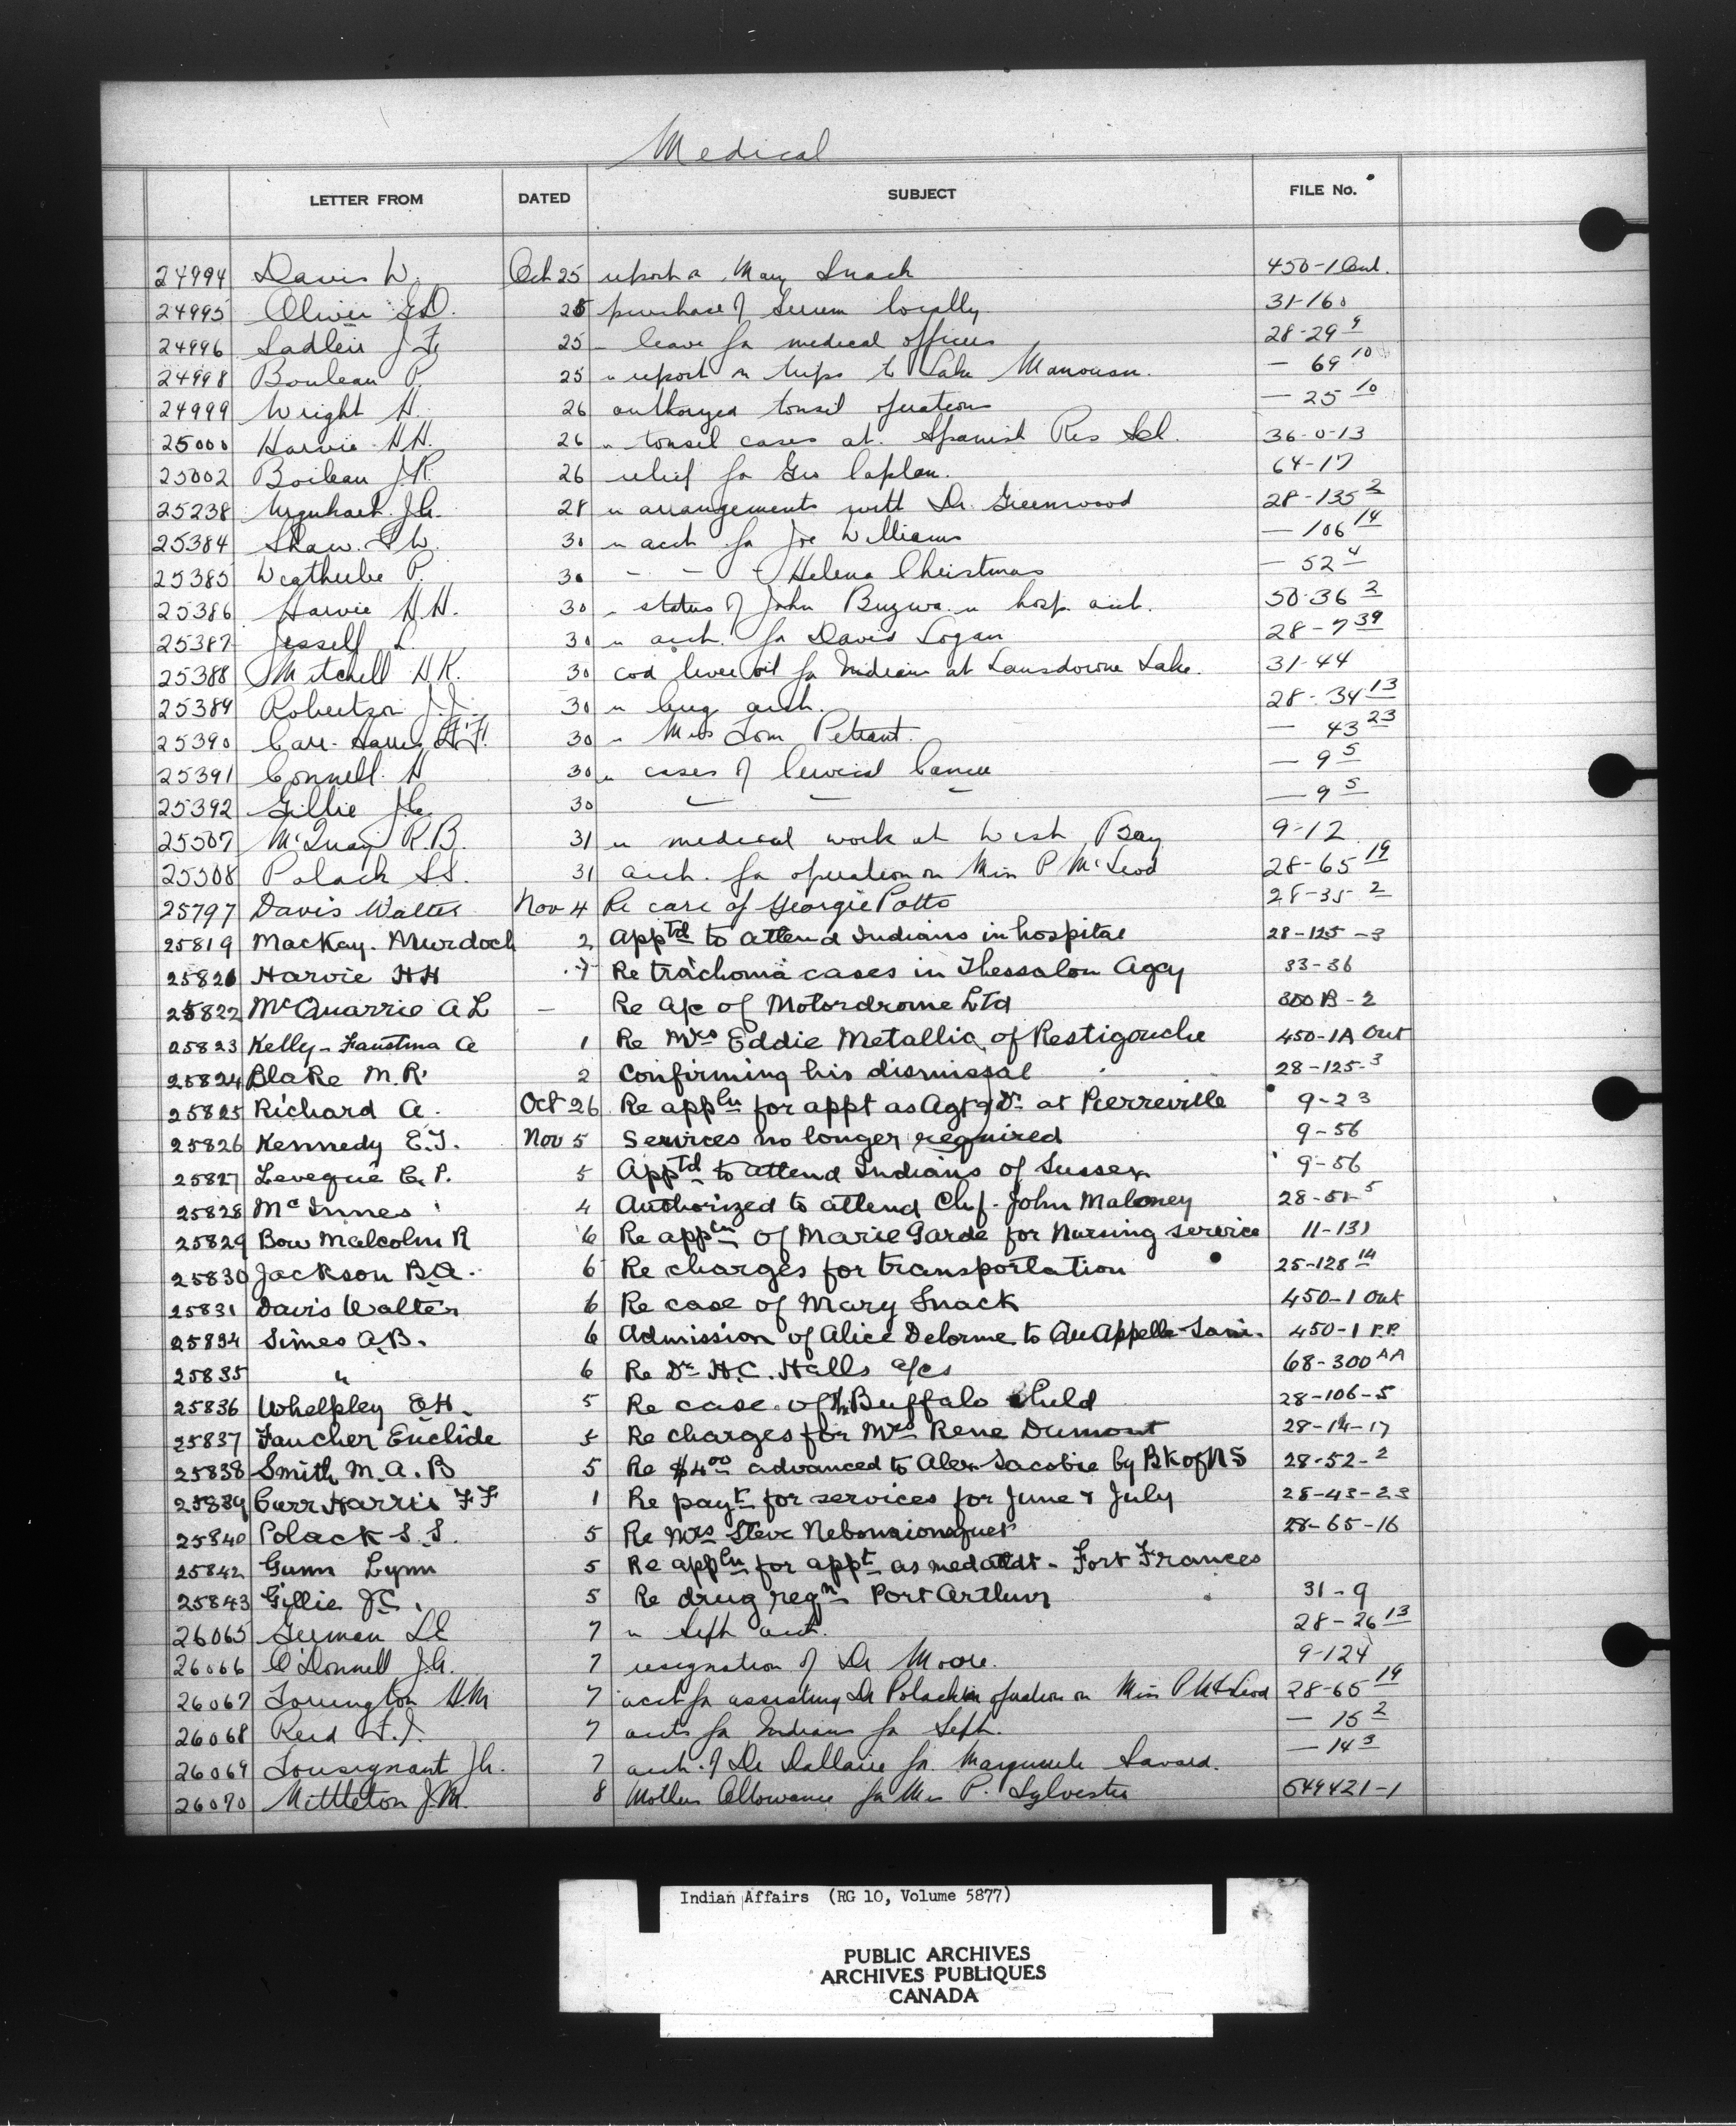 Medical
LETTER FROM DATED SUBJECT FILE No.
24994 Davis W. Oct 25 report a Mary Snack 450-1 Out.
24995 Oliver 25 purchase of Serum locally 31-160
24996 Sadleir J.F. 25 leave for medical officers 28-29 9
24998 Bouleau P. 25 report on trips to Lake Manouan. — 69 10
24999 Wright H. 26 authorized tonsil operations — 25 10
25000 Harvie H.H. 26 tonsil cases at Spanish Res Scl. 36-0-13
25002 Boileau J.R. 26 relief for Geo Caplan. 64-17
25238 Urquhart J.G. 28 arrangements with Dr. Greenwood 28-135 2
25384 Shaw 30 acct for Joe Williams — 106 14
25385 Weatherbe P. 30 - - - Helena Christmas — 52 4
25386 Harvie H.H. 30 status of John Buzwa hosp. acct. 50-36 2
25387 Jessell L. 30 acct. for David Logan 28-7 39
25388 Mitchell H.K. 30 cod liver oil for Indians at Lansdowne Lake. 31-44
25389 Robertson J.J. 30 acct. 28-34 13
25390 Carr-Harris F.F. 30 Mrs Tom — 43 23
25391 Connell H 30 cases of Cervical Cancer — 9 5
25392 Gillie J.C. 30 — 9 5
25507 McQuay R.B. 31 medical work at West Bay 9-12
25508 Polack S.S. 31 acct. for operation on Miss P McLeod 28-65 19
25797 Davis Walter Nov 4 Re care of Georgie Potts 28-35 2
25819 MacKay. Murdoch 2 Apptd to attend Indians in hospital 28-125-3
25820 Harvie HH 7 Re trachoma cases in Thessalon Agcy 33-36
25822 McQuarrie A L — Re a/c of Motordrome Ltd 300 B-2
25823 Kelly-Faustina A 1 Re Mrs Eddie Metallic of Restigouche 450-1A Out
25824 Blake M.R. 2 Confirming his dismissal 28-125-3
25825 Richard A. Oct 26 Re appln for appt as Agt & Dr at Pierreville 9-23
25826 Kennedy E.J. Nov 5 Services no longer required 9-56
25827 Leveque E.P. 5 Apptd to attend Indians of Sussex 9-56
25828 McInnes 4 Authorized to attend Chf. John Maloney
25829 Bow Malcolm R 6 Re appln of Marie Garde for Nursing service 11-131
25830 Jackson B.A. 6 Re charges for transportation 25-128 14
25831 Davis Walter 6 Re case of Mary Snack 450-1 Out
25834 Simes A.B. 6 Admission of Alice Delorme to Qu'Appelle Sani. 450-1 P.P.
25835 " 6 Re Dr H.C. Halls a/cs 68-300 AA
25836 Whelpley E.H. 5 Re case of Buffalo Child 28-106-5
25837 Faucher Euclide 5 Re charges for Mrs Rene Dumont 28-14-17
25838 Smith M.A.B 5 Re $4.00 advanced to Alex Sacobie by Bk of NS 28-52-2
25839 Carr Harris F F 1 Re payt for services for June & July 28-43-23
25840 Polack S.S. 5 Re Mrs Steve 28-65-16
25842 Gunn Lynn 5 Re appln for appt as med attdt - Fort Frances
25843 Gillie J.C. 5 Re drug reqn Port Arthur 31-9
26065 German L.E 7 Sept acct. 28-26 13
26066 O'Donnell J.G. 7 resignation of Dr Moore. 9-124
26067 Torrington H.M 7 acct for assisting Dr Polack in operation on Miss P McLeod 28-65 19
26068 Reid F.J. 7 accts for Indians for Sept. — 15 2
26069 Tousignant J.G. 7 acct. of Dr Dallaire for Marguerite Savard. — 14 3
26070 Mittleton J.M. 8 Mothers Allowance for Mrs P. Sylvester 549421-1
Indian Affairs (RG 10, Volume 5877)
PUBLIC ARCHIVES
ARCHIVES PUBLIQUES
CANADA